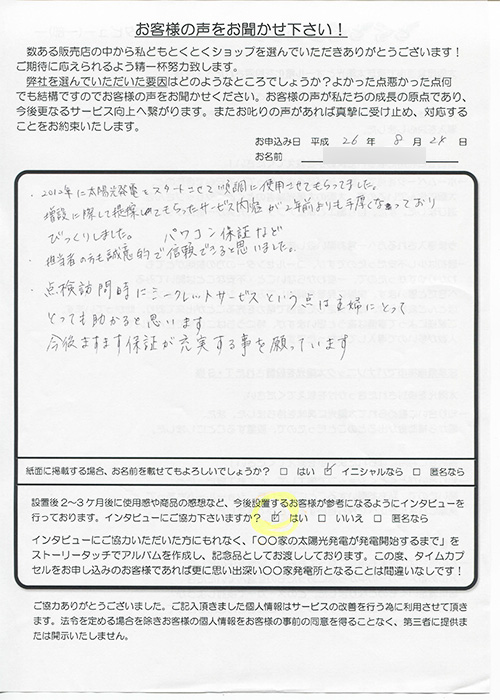 お客様の声をお聞かせ下さい！
数ある販売店の中から私どもとくとくショップを選んでいただきありがとうございます！
ご期待に応えられるよう精一杯努力致します。
弊社を選んでいただいた要因はどのようなところでしょうか？よかった点悪かった点何
でも結構ですのでお客様の声をお聞かせください。お客様の声が私たちの成長の原点であり、
今後更なるサービス向上へ繋がります。またお叱りの声があれば真摯に受け止め、対応する
ことをお約束いたします。
お申込み日 平成 26 年 8 月 28 日
お名前
・2012年に太陽光発電をスタートさせて順調に使用させてもらってました。
増設に際して提案してもらったサービス内容が2年前よりも手厚くなっており
びっくりしました。 パワコン保証など
・担当者の方も誠意的で信頼できると思いました。
・点検訪問時にシークレットサービスという点は主婦にとって
とっても助かると思います
今後ますます保証が充実する事を願っています
紙面に掲載する場合、お名前を載せてもよろしいでしょうか？ □ はい ☑ イニシャルなら □ 匿名なら
設置後２～３ケ月後に使用感や商品の感想など、今後設置するお客様が参考になるようにインタビューを
行っております。インタビューにご協力下さいますか？ ☑ はい □ いいえ □ 匿名なら
インタビューにご協力いただいた方にもれなく、「〇〇家の太陽光発電が発電開始するまで」を
ストーリータッチでアルバムを作成し、記念品としてお渡ししております。この度、タイムカプ
セルをお申し込みのお客様であれば更に思い出深い〇〇家発電所となることは間違いなしです！
ご協力ありがとうございました。ご記入頂きました個人情報はサービスの改善を行う為に利用させて頂き
ます。法令を定める場合を除きお客様の個人情報をお客様の事前の同意を得ることなく、第三者に提供ま
たは開示いたしません。